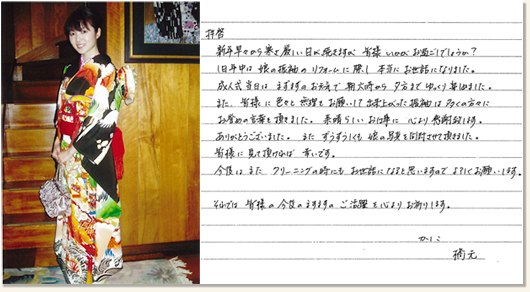 拝啓
新年早々から寒さ厳しい日が続きますが 皆様 いかがお過ごしでしょうか？
旧年中は 娘の振袖のリフォームに際し 本当にお世話になりました。
成人式当日は まずまずのお天気で 朝六時から夕方まで ゆっくり着れました。
また、皆様に色々と無理をお願いして出来上がった振袖は 多くの方々に
お誉めの言葉を頂きました。素晴らしいお仕事に 心より感謝致します。
ありがとうございました。また ずうずうしくも 娘の写真を同封させて頂きました。
皆様に見て頂ければ 幸いです。
今後は また クリーニングの時にも お世話になると思いますので よろしくお願いします。
それでは 皆様の今後のますますの ご活躍を心よりお祈りします。
かしこ
橋元